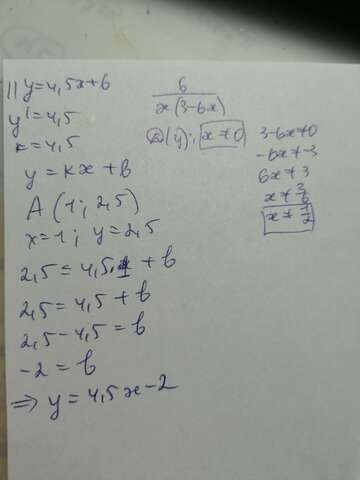 || y=4,5x+6
y'=4,5
k=4,5
y=kx+b
A (1; 2,5)
x=1; y=2,5
2,5=4,5·1+b
2,5=4,5+b
2,5-4,5=b
-2=b
⇒ y=4,5x-2
6
x(3-6x)
D(y): x≠0
3-6x≠0
-6x≠-3
6x≠3
x≠3/6
x≠1/2